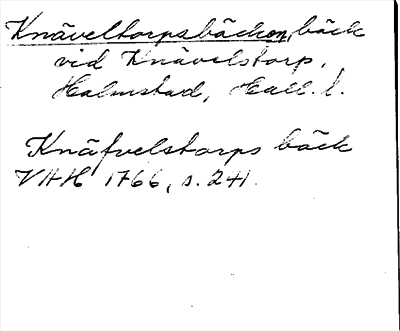 Knäveltorpsbäcken, bäck
vid Knävelstorp,
Halmstad, Hall. l.
Knäfvelstorps bäck
VHH 1766, s. 241.